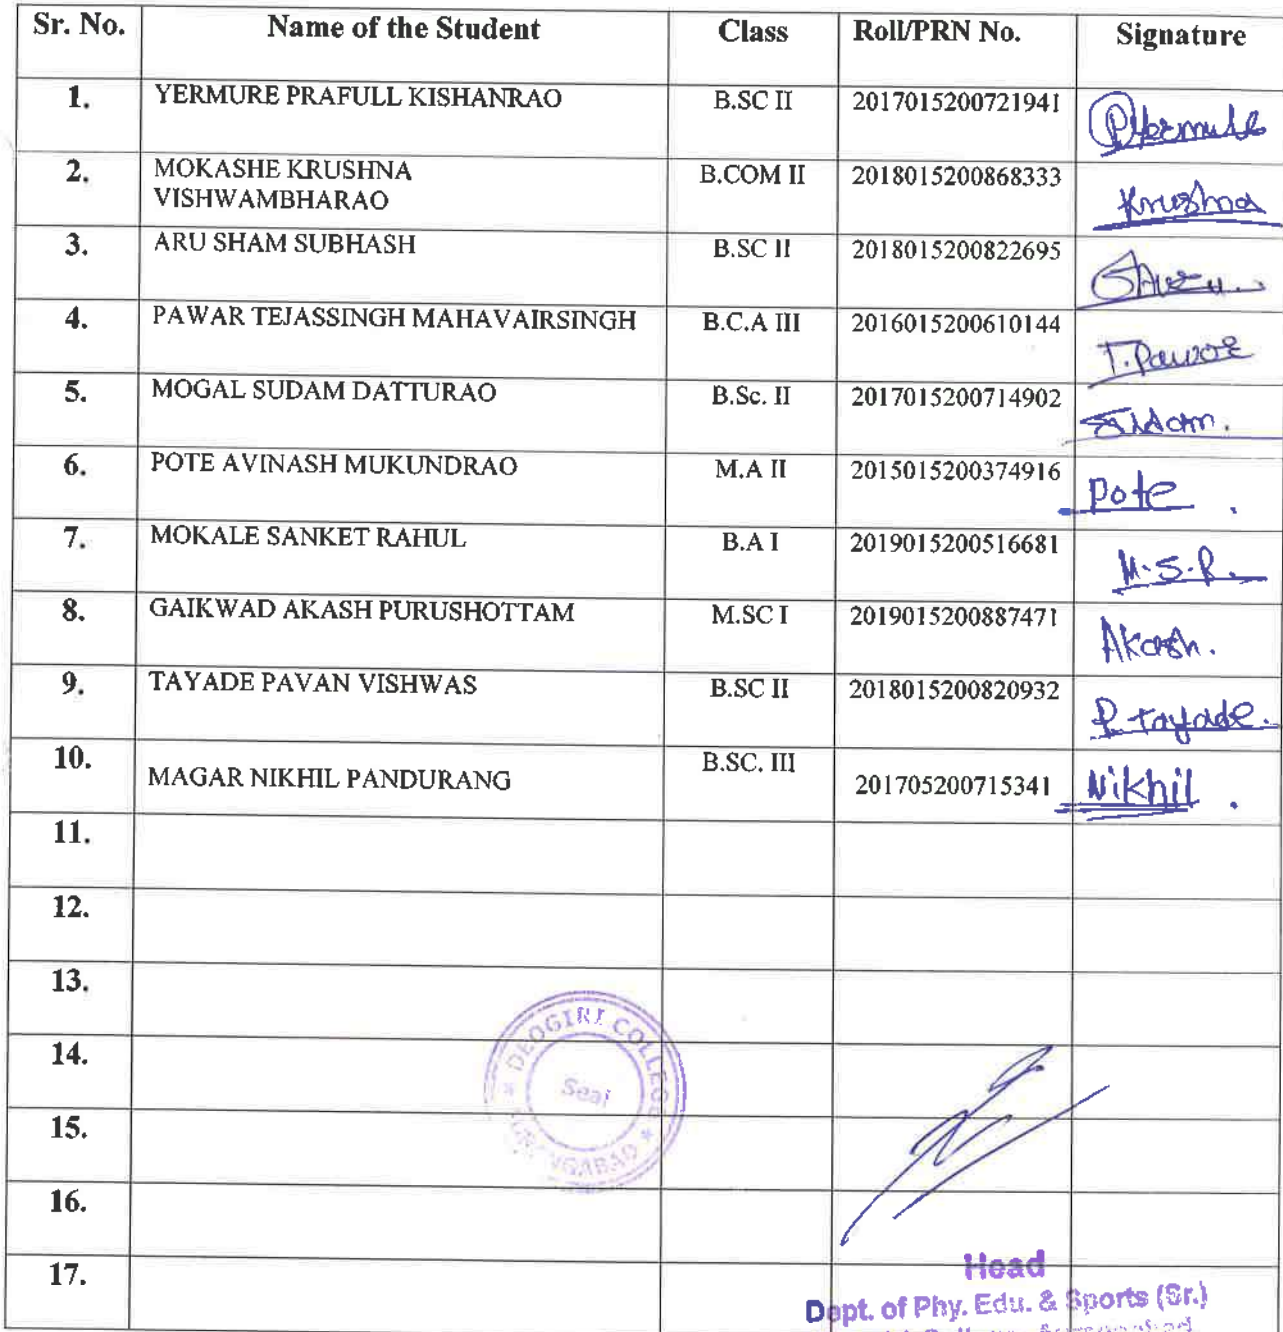 Sr. No. Name of the Student Class Roll/PRN No. Signature
1. YERMURE PRAFULL KISHANRAO B.SC II 2017015200721941 PYermule
2. MOKASHE KRUSHNA B.COM II 2018015200868333 Krushna
VISHWAMBHARAO
3. ARU SHAM SUBHASH B.SC II 2018015200822695
4. PAWAR TEJASSINGH MAHAVAIRSINGH B.C.A III 2016015200610144 T.Pawar
5. MOGAL SUDAM DATTURAO B.Sc. II 2017015200714902 Sudam.
6. POTE AVINASH MUKUNDRAO M.A II 2015015200374916 Pote.
7. MOKALE SANKET RAHUL B.A I 2019015200516681 M.S.R.
8. GAIKWAD AKASH PURUSHOTTAM M.SC I 2019015200887471 Akash.
9. TAYADE PAVAN VISHWAS B.SC II 2018015200820932 P tayade.
10. MAGAR NIKHIL PANDURANG B.SC. III 201705200715341 Nikhil.
11.
12.
13.
DEOGIRI COLLEGE
14.
Seal
15.
AURANGABAD
16.
17.
Head
Dept. of Phy. Edu. & Sports (Sr.)
College, Aurangabad